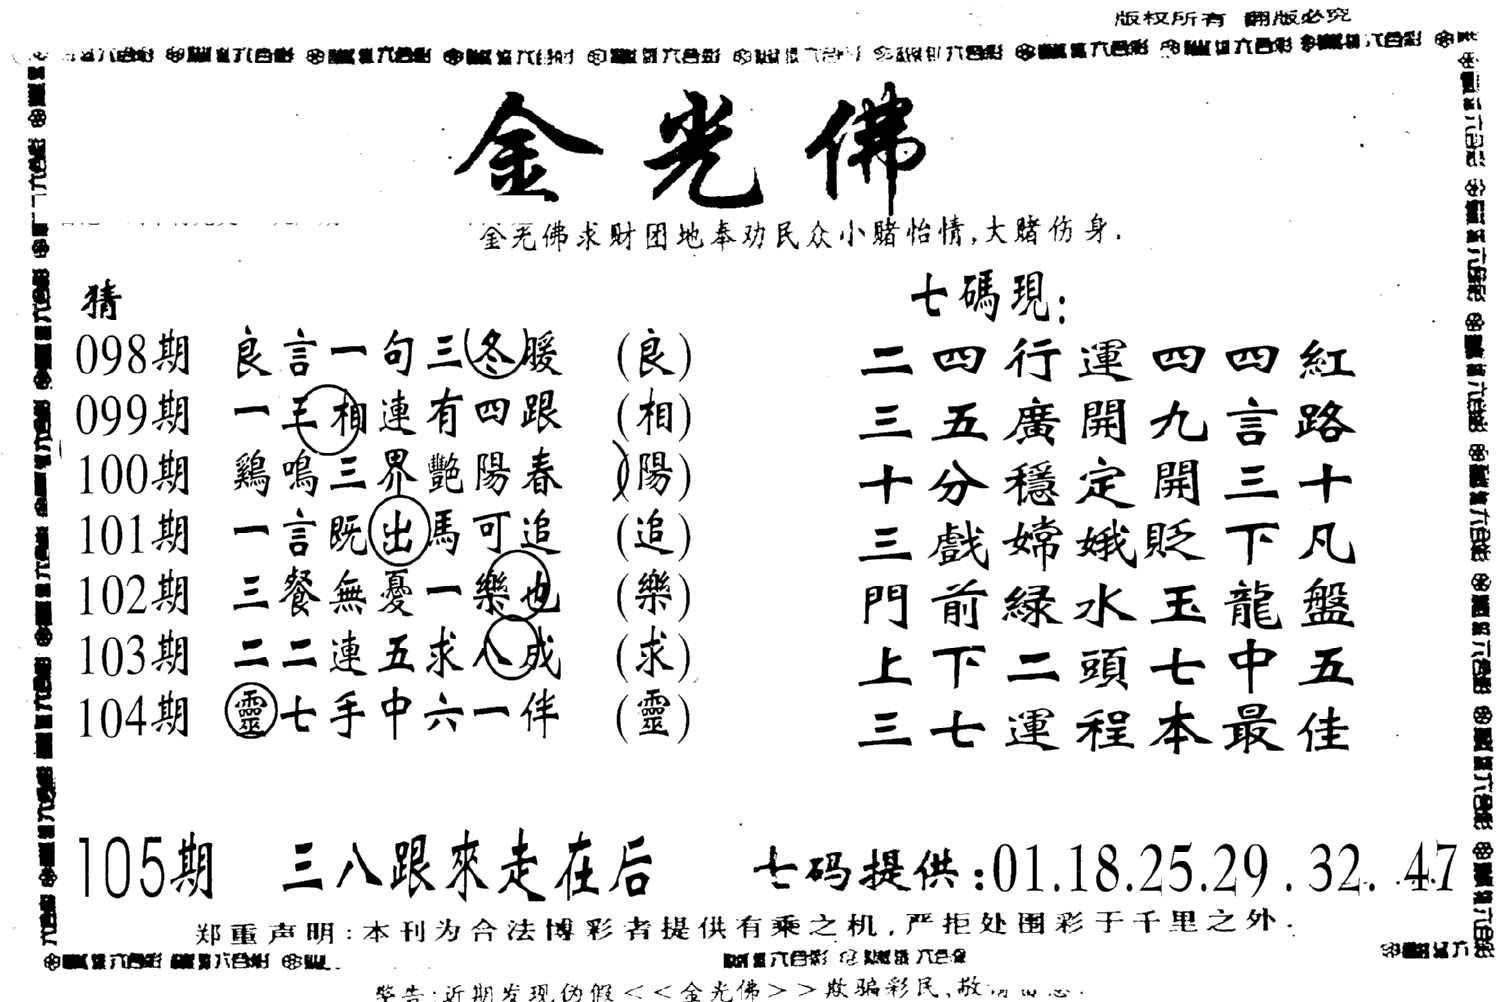 版权所有 翻版必究
金光佛
金光佛求财团地奉劝民众小赌怡情,大赌伤身.
猜
098期 良言一句三冬暖 (良)
099期 一王相連有四跟 (相)
100期 鷄鳴三界艷陽春 (陽)
101期 一言既出馬可追 (追)
102期 三餐無憂一樂也 (樂)
103期 二二連五求八成 (求)
104期 靈七手中六一伴 (靈)
七碼現:
二四行運四四紅
三五廣開九言路
十分穩定開三十
三戲嫦娥貶下凡
門前緑水玉龍盤
上下二頭七中五
三七運程本最佳
105期 三八跟來走在后
七码提供:01.18.25.29.32.47
郑重声明:本刊为合法博彩者提供有乘之机,严拒处围彩于千里之外.
警告:近期发现伪假<<金光佛>>欺骗彩民,敬